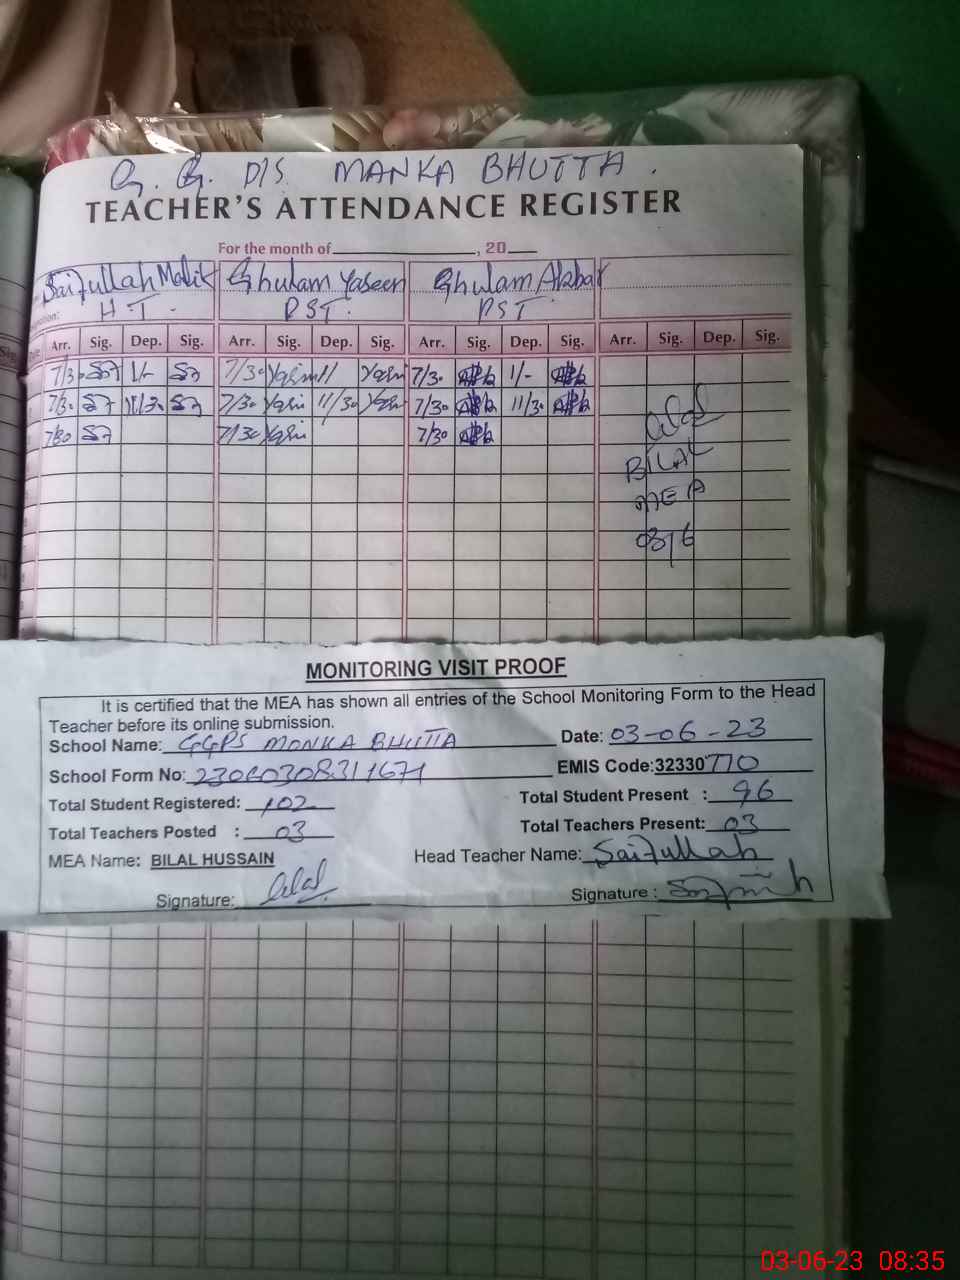 G. G. P/S MANKA BHUTTA.
TEACHER'S ATTENDANCE REGISTER
For the month of , 20
Saifullah Malik Ghulam Yaseen Ghulam Akbar
H.T. PST. PST.
Arr. Sig. Dep. Sig. Arr. Sig. Dep. Sig. Arr. Sig. Dep. Sig. Arr. Sig. Dep. Sig.
7/30 1/- 7/30 7/30 1/-
7/30 11/30 7/30 11/30 7/30 11/30
7/30 7/30 7/30
BILAL
MEA
MONITORING VISIT PROOF
It is certified that the MEA has shown all entries of the School Monitoring Form to the Head
Teacher before its online submission.
School Name: GGPS MONKA BHUTTA Date: 03-06-23
School Form No: 23060308311671 EMIS Code:32330770
Total Student Registered: 102 Total Student Present : 96
Total Teachers Posted : 03 Total Teachers Present: 03
MEA Name: BILAL HUSSAIN Head Teacher Name: Saifullah
Signature: Signature :
03-06-23 08:35